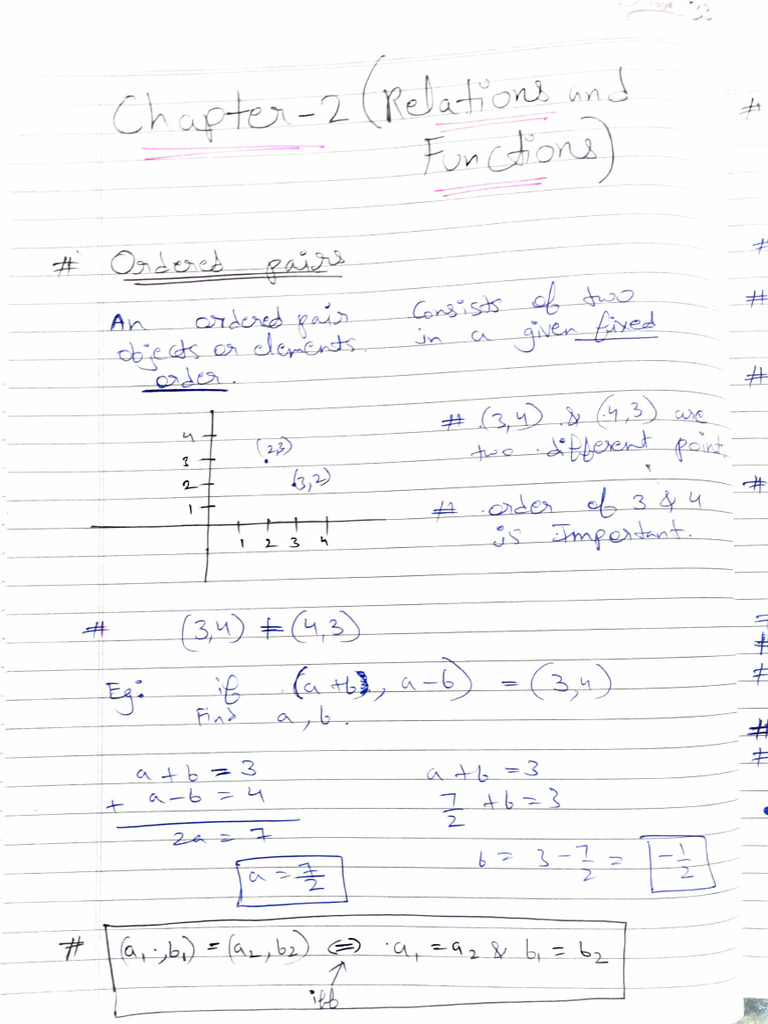 Page 33
Chapter-2 (Relations and
Functions)
# Ordered pairs
An ordered pair consists of two
objects or elements in a given fixed
order.
4
3
2
1
(2,3)
(3,2)
1 2 3 4
# (3,4) & (4,3) are
two different point.
# order of 3 & 4
is Important.
# (3,4) ≠ (4,3)
Eg: if (a+b), a-b) = (3,4)
Find a, b.
a + b = 3
+ a - b = 4
2a = 7
a = 7/2
a + b = 3
7/2 + b = 3
b = 3 - 7/2 = -1/2
# (a₁, b₁) = (a₂, b₂) ⇔ a₁ = a₂ & b₁ = b₂
iff